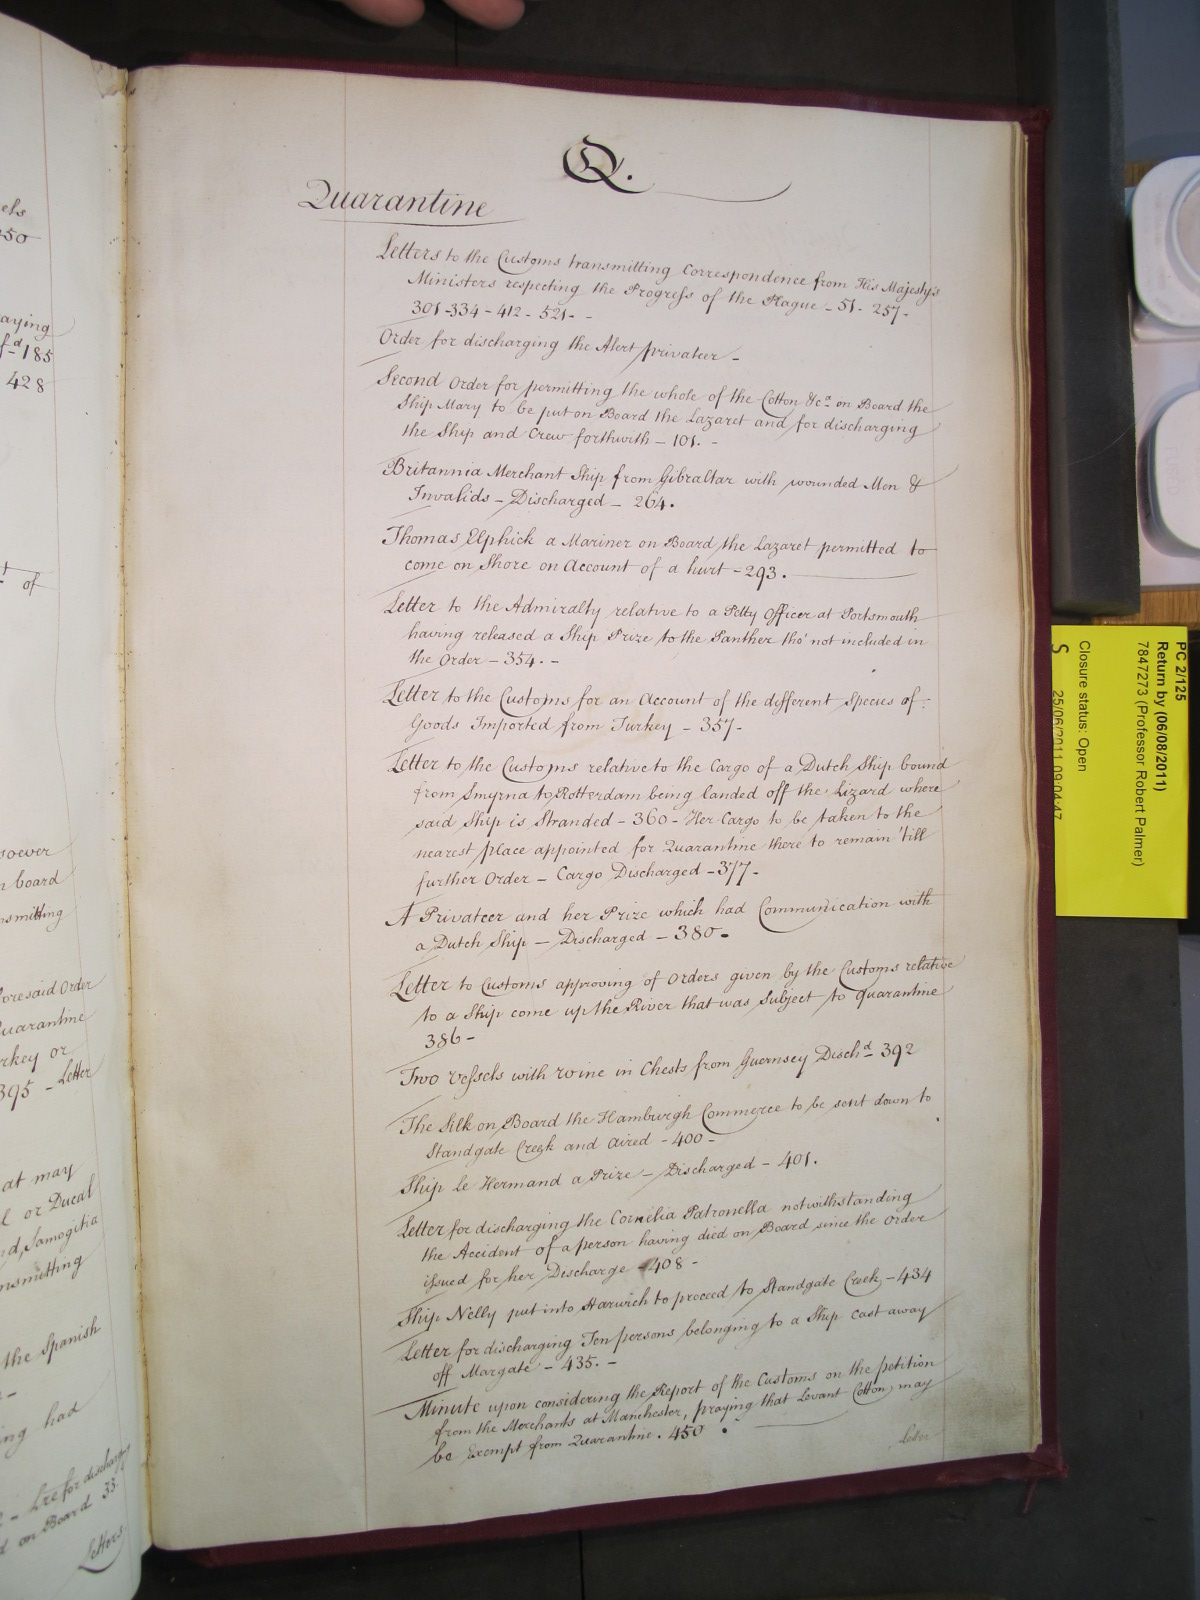 Q.
Quarantine
Letters to the Customs transmitting Correspondence from His Majesty's
Ministers respecting the Progress of the Plague - 51. 257-
301-334-412-521- -
Order for discharging the Alert privateer -
Second Order for permitting the whole of the Cotton &ca on Board the
Ship Mary to be put on Board the Lazaret and for discharging
the Ship and Crew forthwith - 101. -
Britannia Merchant Ship from Gibraltar with wounded Men &
Invalids - Discharged - 264.
Thomas Elphick a Mariner on Board the Lazaret permitted to
come on Shore on Account of a hurt - 293.
Letter to the Admiralty relative to a Petty Officer at Portsmouth
having released a Ship Prize to the Panther tho' not included in
the Order - 354. -
Letter to the Customs for an Account of the different Species of
Goods Imported from Turkey - 357-
Letter to the Customs relative to the Cargo of a Dutch Ship bound
from Smyrna to Rotterdam being landed off the Lizard where
said Ship is Stranded - 360 - Her Cargo to be taken to the
nearest place appointed for Quarantine there to remain 'till
further Order - Cargo Discharged - 377-
A Privateer and her Prize which had Communication with
a Dutch Ship - Discharged - 380-
Letter to Customs approving of Orders given by the Customs relative
to a Ship come up the River that was Subject to quarantine
386-
Two Vessels with wine in Chests from Guernsey Dischd 392
The Silk on Board the Hamburgh Commerce to be sent down to
Standgate Creek and aired - 400 -
Ship le Hermand a Prize - Discharged - 401.
Letter for discharging the Cornelia Patronella notwithstanding
the Accident of a person having died on Board since the Order
issued for her Discharge - 408 -
Ship Nelly put into Harwich to proceed to Standgate Creek - 434
Letter for discharging Ten persons belonging to a Ship cast away
off Margate - 435. -
Minute upon considering the Report of the Customs on the petition
from the Merchants at Manchester, praying that Levant Cotton may
be Exempt from Quarantine. 450.
els
250
aying
fd 185
428
of
soever
n board
nsmitting
foresaid Order
Quarantine
rkey or
395 - Letter
at may
l or Ducal
nd, Samogitia
nsmitting
the Spanish
ng had
- Lre for discharging
d on Board 33.
Letters
PC 2/125
Return by (06/08/2011)
7847273 (Professor Robert Palmer)
Closure status: Open
S 25/06/2011 09:04:47